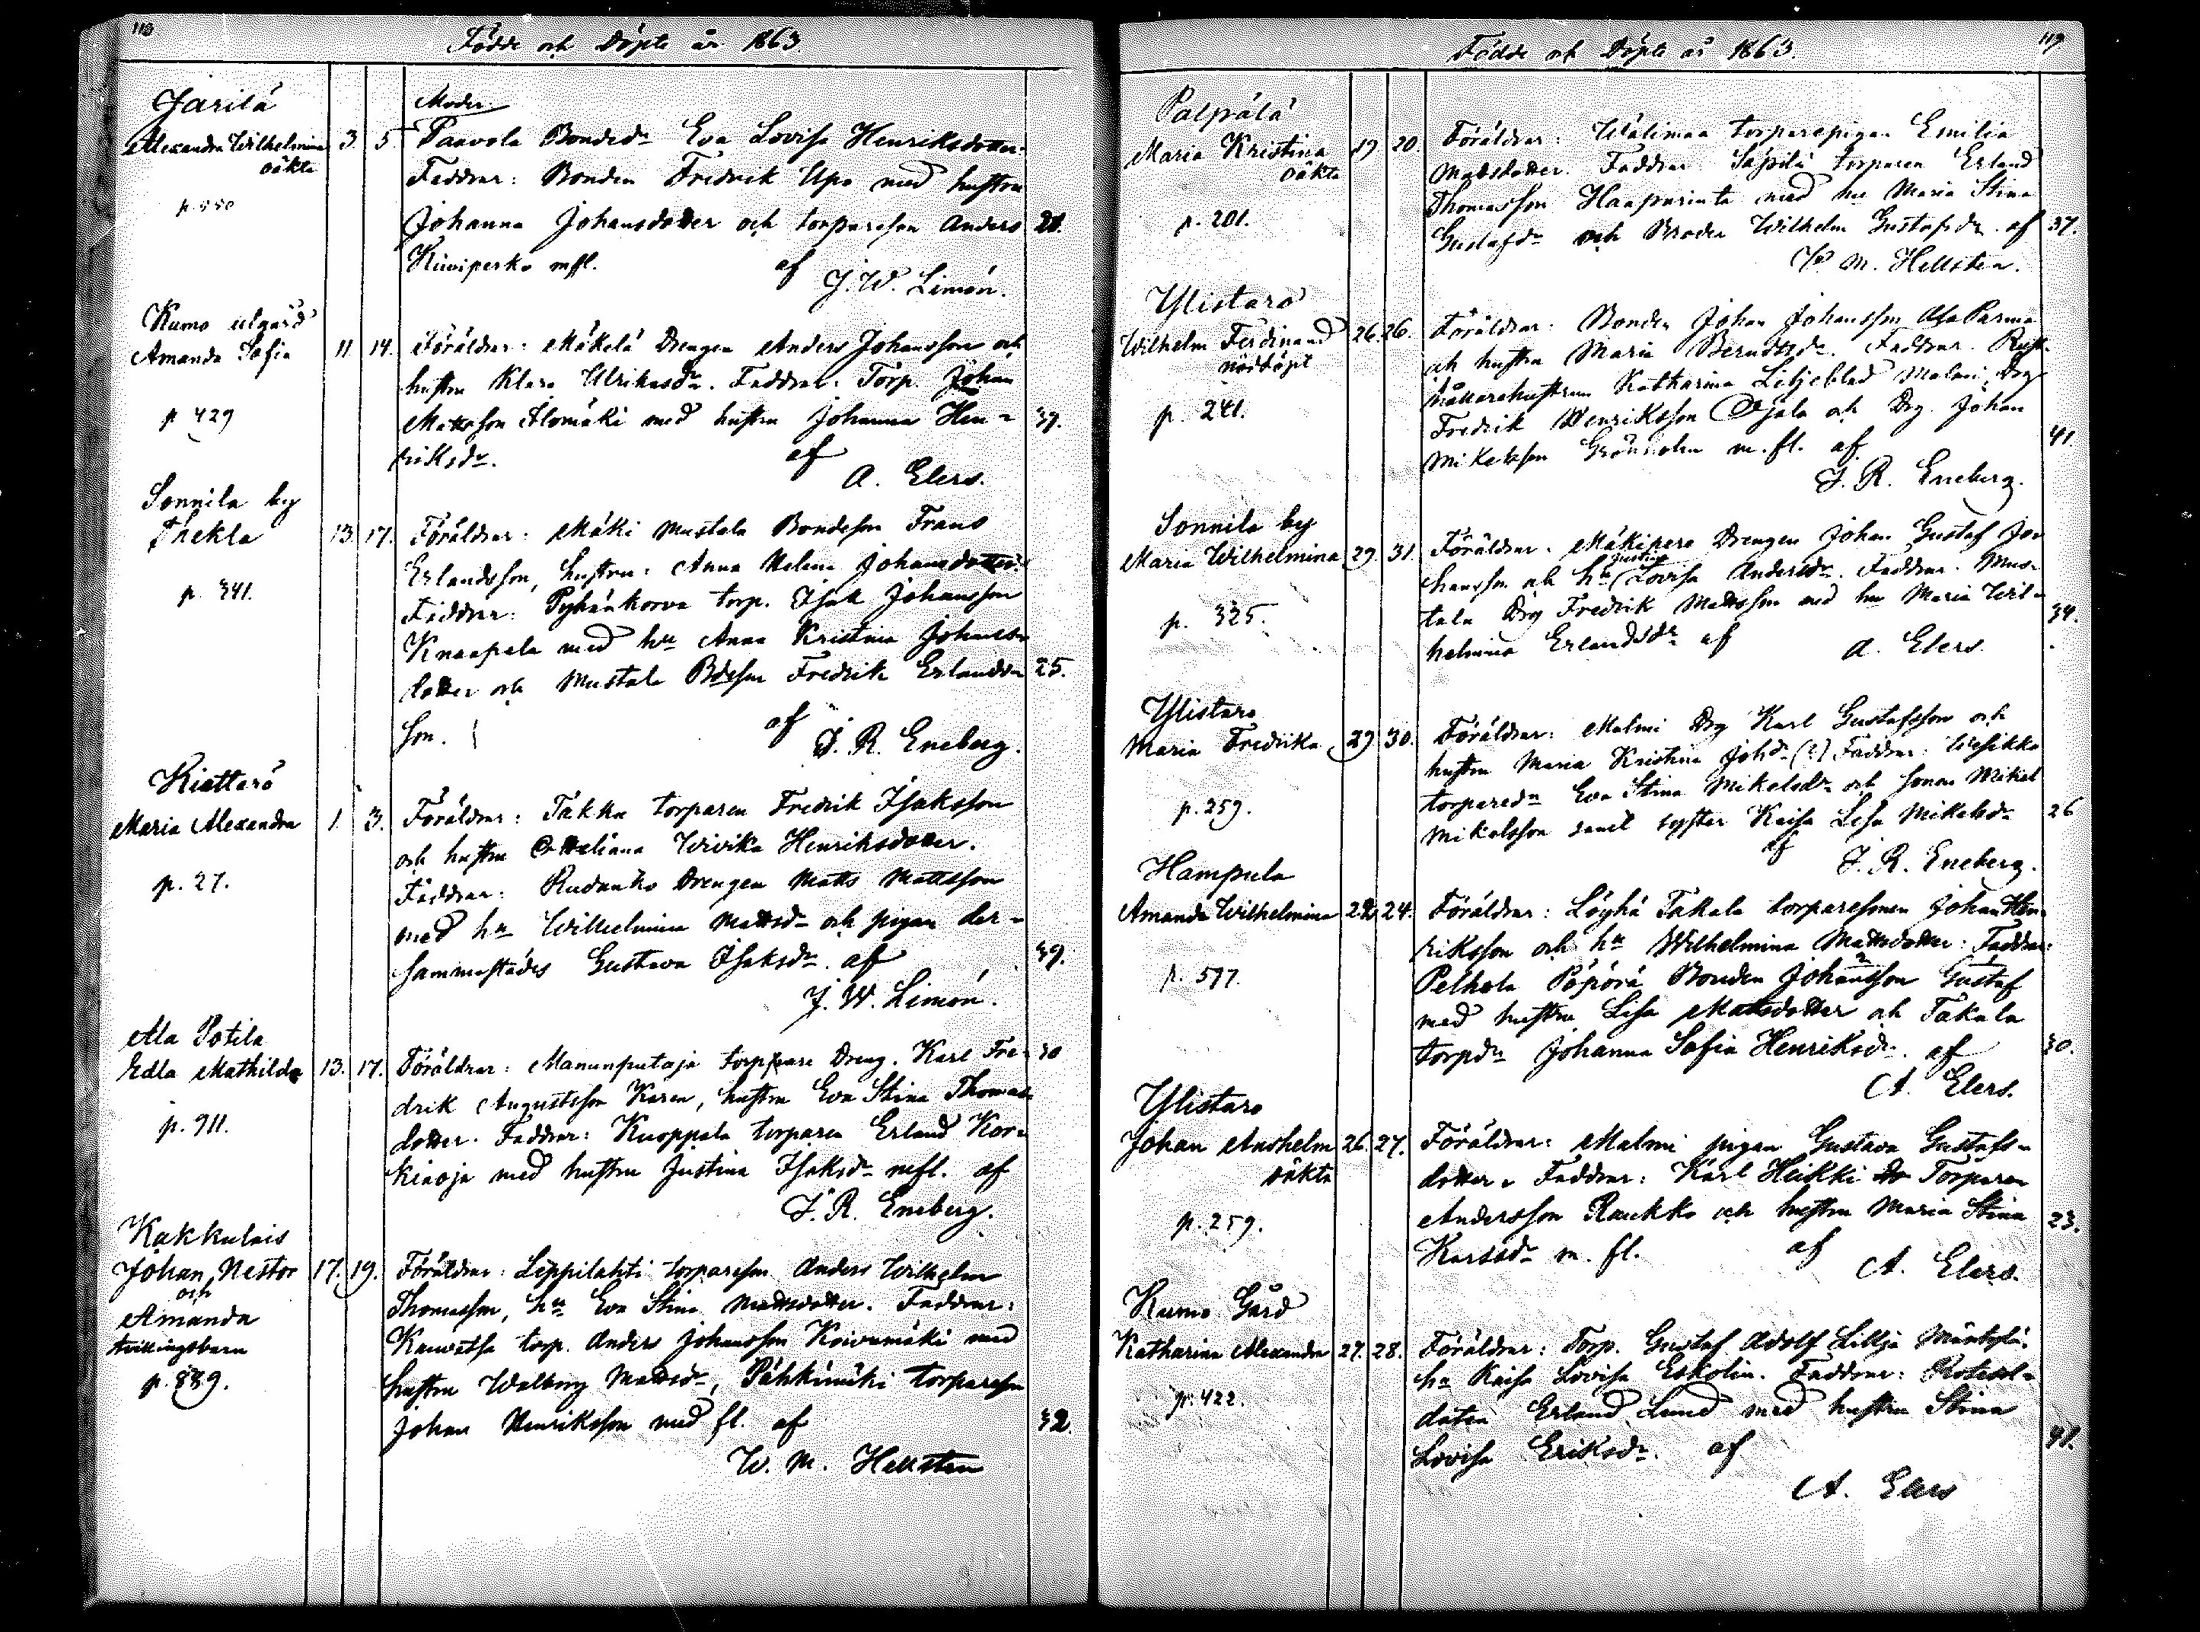 118
Födde och Döpte år 1863.
Jarilä
Alexandra Wilhelmina
oäkta
p. 550
3. 5.
Moder
Paavola Bonded:r Eva Lovisa Henriksdotter.
Faddrar: Bonden Fredrik Upo med hustru
Johanna Johansdotter och torparson Anders
Kiviperko mfl. af
J. W. Limón.
21.
Kumo utgård
Amanda Sofia
p 429
11. 14.
Föräldrar: Mäkelä Drengen Anders Johansson och
hustru Klara Ulriksd:r. Faddrar: Torp. Johan
Mattsson Alomäki med hustru Johanna Hen-
riksd:r. af
A. Elers.
39.
Sonnila by
Thekla
p. 341.
13. 17.
Föräldrar: Mäki Mustala Bondeson Frans
Erlandsson, hustru: Anna Helena Johansdotter.
Faddrar: Pyhänkorva torp. Isak Johansson
Knaapala med h:u Anna Kristina Johans-
dotter och Mustala Bdeson Fredrik Erlands-
son. af
J. R. Eneberg.
25.
Kiettarö
Maria Alexandra
p. 27.
1. 3.
Föräldrar: Takku torparen Fredrik Isaksson
och hustru Ottiliana Wivika Henriksdotter.
Faddrar: Rudanko Drengen Matts Mattsson
med h:u Wilhelmina Mattsd:r och pigan der-
sammastädes Gustava Isaksd:r. af
J. W. Limón.
39.
Ala Potila
Edla Mathilda
p. 911.
13. 17.
Föräldrar: Manunputaja torppare Dreng. Karl Fre-
drik Augustsson Karen, hustru Eva Stina Thomas-
dotter. Faddrar: Kuoppala torparen Erland Kor-
kiaoja med hustru Justina Isaksd:r mfl. af
J. R. Eneberg.
30
Kakkulais
Johan Nestor
och
Amanda
tvillingsbarn
p. 889.
17. 19.
Föräldrar: Leppilahti torparson Anders Wilhelm
Thomasson, h:u Eva Stina Mattsdotter. Faddrar:
Kauvatsa torp. Anders Johansson Koivumäki med
hustru Walborg Mattsd:r, Pähkimäki torparson
Johan Henriksson med fl. af
W. M. Hellsten
32.
119
Födde och Döpte år 1863.
Palpälä
Maria Kristina
oäkta
p. 201.
19 20.
Föräldrar: Wälimaa torparepigan Emilia
Mattsdotter. Faddrar Säpilä torparen Erland
Thomasson Haapurinta med hu Maria Stina
Gustafsd:r och Broder Wilhelm Gustafsd:r. af
W. M. Hellsten.
37.
Ylistaro
Wilhelm Ferdinand
nöddöpt
p. 241.
26. 26.
Föräldrar: Bonden Johan Johansson Ala Parma
och hustru Maria Berndtsd:r. Faddrar. Rust-
hållarehustrun Katharina Liljeblad Malmi, Drg
Fredrik Henriksson Ojala och Drg. Johan
Mikelsson Grönholm m. fl. af
J. R. Eneberg.
41.
Sonnila by
Maria Wilhelmina
p. 325.
29. 31.
Föräldrar. Mäkipere Drengen Johan Gustaf Jo-
hansson och h:u Justina Lovisa Andersd:r. Faddrar. Mus-
tala Drg Fredrik Mattsson med hu Maria Wil-
helmina Erlandsd:r af
A. Elers.
34.
Ylistaro
Maria Fredrika
p. 259.
29 30.
Föräldrar: Malmi Drg Karl Gustafsson och
hustru Maria Kristina Johd:r (?) Faddrar: Wesikko
torpared:r Eva Stina Mikelsd:r och sonen Mikel
Mikelsson samt syster Kaisa Lisa Mikelsd:r
af
J. R. Eneberg.
26
Hampula
Amanda Wilhelmina
p. 597.
22. 24.
Föräldrar: Löyhä Takala torparesonen Johan Hen-
riksson och h:u Wilhelmina Mattsdotter. Faddrar:
Pelhola Pöpörä Bonden Johansson Gustaf
med hustru Lisa Mattsdotter och Takala
torpd:r Johanna Sofia Henriksd:r. af
A. Elers.
30.
Ylistaro
Johan Anshelm
oäkta
p. 259.
26. 27.
Föräldrar: Malmi pigan Gustava Gustafs-
dotter. Faddrar: Karl Heikki Torparen
Andersson Raukko och hustru Maria Stina
Karlsd:r m. fl. af
A. Elers.
23.
Kumo Gård
Katharina Alexandra
p. 422.
27. 28.
Föräldrar: Torp. Gustaf Adolf Lillja Mäntylä.
h:u Kaisa Lovisa Eskolin. Faddrar: Rotesol-
daten Erland Lund med hustru Stina
Lovisa Eriksd:r. af
A. Elers
41.